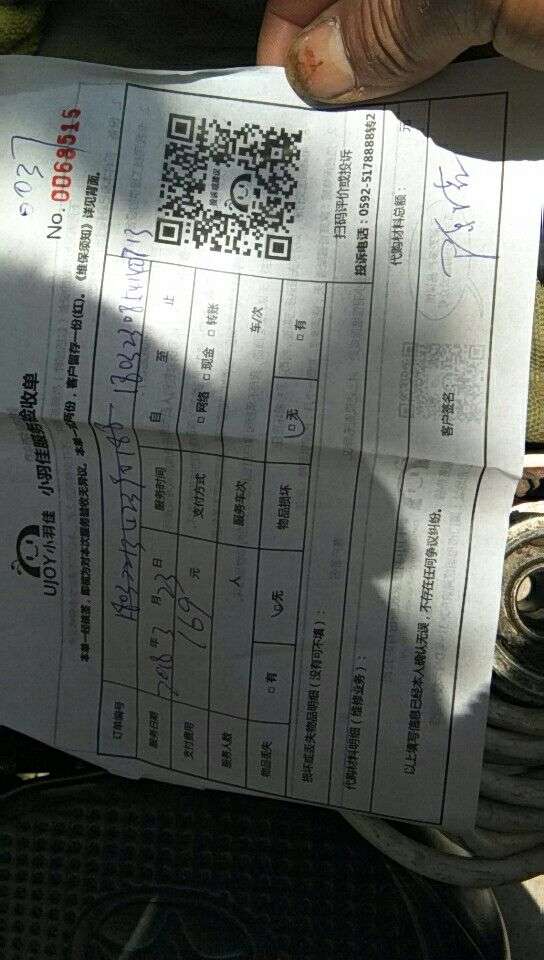 0037
No. 0068515
UJOY小羽佳 小羽佳服务验收单
本单一经填签,即视为对本次服务验收无异议。本单一式两份,客户留存一份(红)。《维保须知》详见背面。
订单编号
服务日期 2018 年 3 月 23 日 服务时间 自 至 止
支付费用 169 元 支付方式 □网络 □现金 □转账
服务人数 人 服务车次 车/次
物品丢失 □有 □无 物品损坏 □无 □有
投诉或建议
扫码评价或投诉
投诉电话:0592-5178888转2
损坏或丢失物品明细(没有可不填):
代购材料明细(维修业务): 代购材料总额: 元
以上填写信息已经本人确认无误,不存在任何争议纠纷。
客户签名: